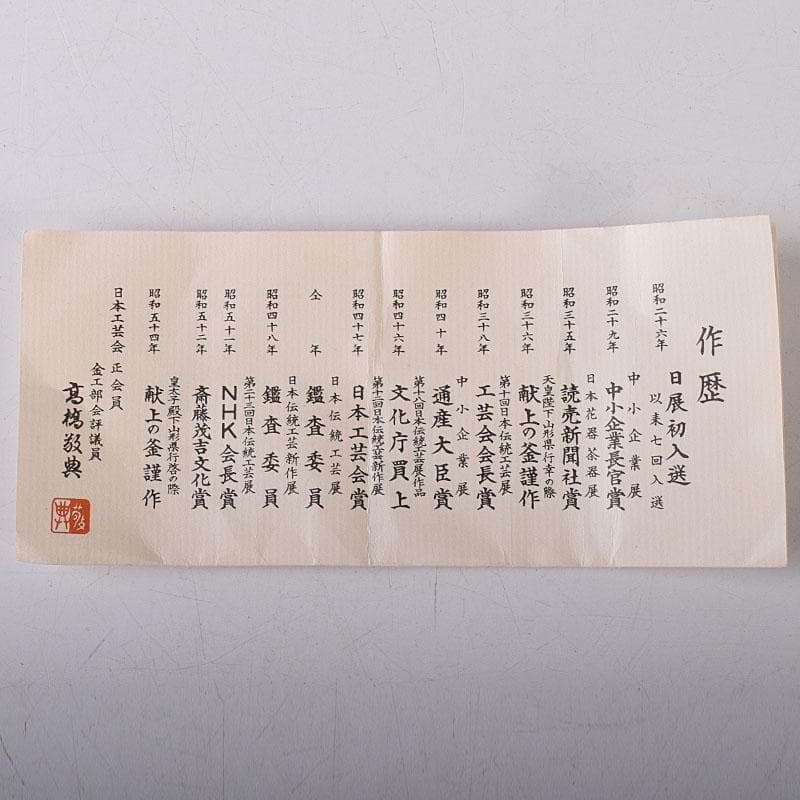 作歴
昭和二十六年 日展初入選
以来七回入選
中小企業展
昭和二十九年 中小企業長官賞
日本花器茶器展
昭和三十五年 読売新聞社賞
天皇陛下山形県行幸の際
昭和三十六年 献上の釜謹作
第十回日本伝統工芸展
昭和三十八年 工芸会会長賞
中小企業展
昭和四十年 通産大臣賞
第十八回日本伝統工芸展作品
昭和四十六年 文化庁買上
第十二回日本伝統工芸新作展
昭和四十七年 日本工芸会賞
日本伝統工芸展
仝年 鑑査委員
日本伝統工芸新作展
昭和四十八年 鑑査委員
第二十三回日本伝統工芸展
昭和五十一年 NHK会長賞
昭和五十二年 斎藤茂吉文化賞
皇太子殿下山形県行啓の際
昭和五十四年 献上の釜謹作
日本工芸会 正会員
金工部会評議員
髙橋敬典
敬典